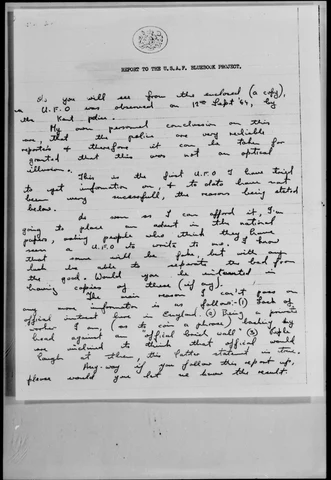 REPORT TO THE U.S.A.F. BLUEBOOK PROJECT.
As you will see from the enclosed (a copy),
U.F.O was observed on 12nd Sept '64, by
the Kent police.
My own personal conclusion on this
are, that the police are very reliable
reporters & therefore it can be taken for
granted that this was not an optical
illusion.
This is the first U.F.O I have tried
to get information on & to date have not
been very sucessfull, the reasons being stated
below.
As soon as I can afford it, I'm
going to place an advert in the national
papers, asking people who think they have
seen a U.F.O to write to me. I know
that some will be fake, but with some
luck be able to seperate the bad from
the good. Would you be interested in
having copies of these (if any).
The main reason I can't pass on
any more information is as follows:- (1) Lack of
official interest here in England. (2) Being a private
worker I am, (as to coin a phrase) bashing my
head against an "official brick wall" (3) People
are inclined to think that official would
laugh at them, this latter statement is true.
Any-way if you follow this report up,
please would you let me know the result